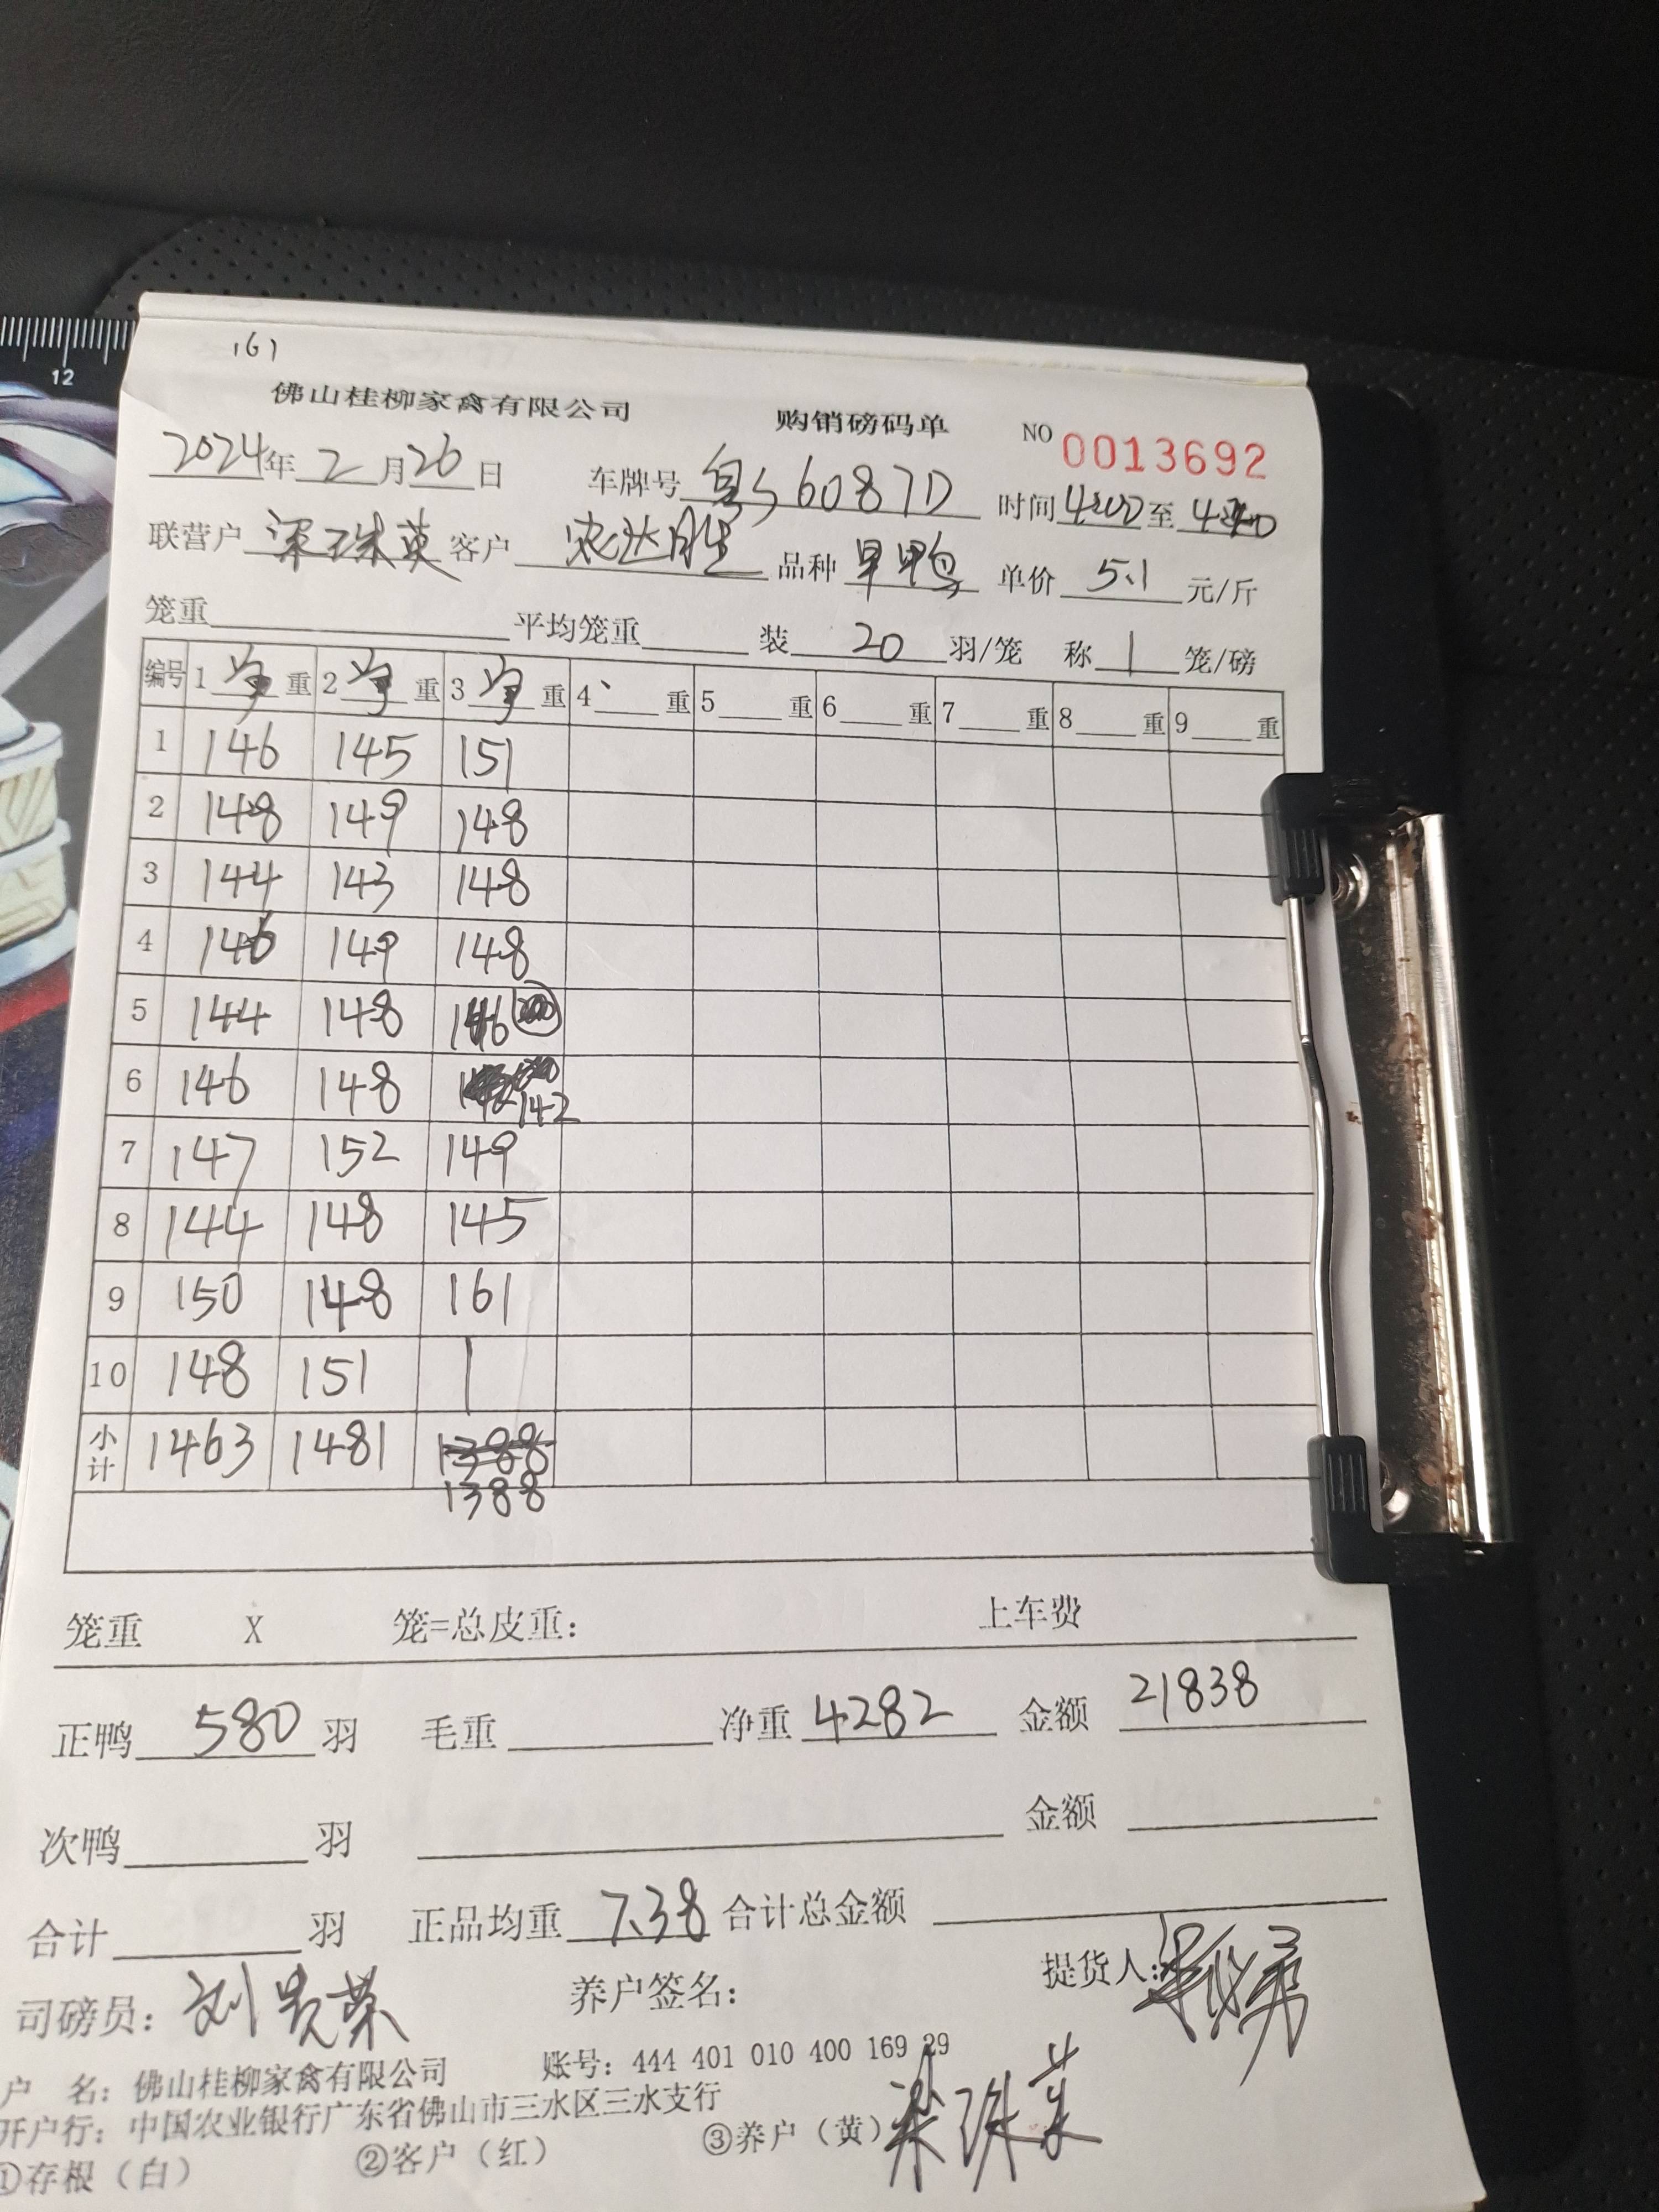 161
佛山桂柳家禽有限公司 购销磅码单 NO 0013692
2024年 2 月 26 日 车牌号 粤S6087D 时间 至
联营户 梁珠英 客户 农达胜 品种 旱鸭 单价 5.1 元/斤
笼重 平均笼重 装 20 羽/笼 称 1 笼/磅
编号 1 重 2 重 3 重 4 重 5 重 6 重 7 重 8 重 9 重
1 146 145 151
2 148 149 148
3 144 143 148
4 146 149 148
5 144 148 146
6 146 148 142
7 147 152 149
8 144 148 145
9 150 148 161
10 148 151
小计 1463 1481 1388
1388
笼重 X 笼=总皮重: 上车费
正鸭 580 羽 毛重 净重 4282 金额 21838
次鸭 羽 金额
合计 羽 正品均重 7.38 合计总金额
司磅员: 刘贵荣 养户签名: 提货人:
户 名: 佛山桂柳家禽有限公司 账号: 444 401 010 400 169 29
开户行: 中国农业银行广东省佛山市三水区三水支行 梁珠英
①存根（白） ②客户（红） ③养户（黄）
12